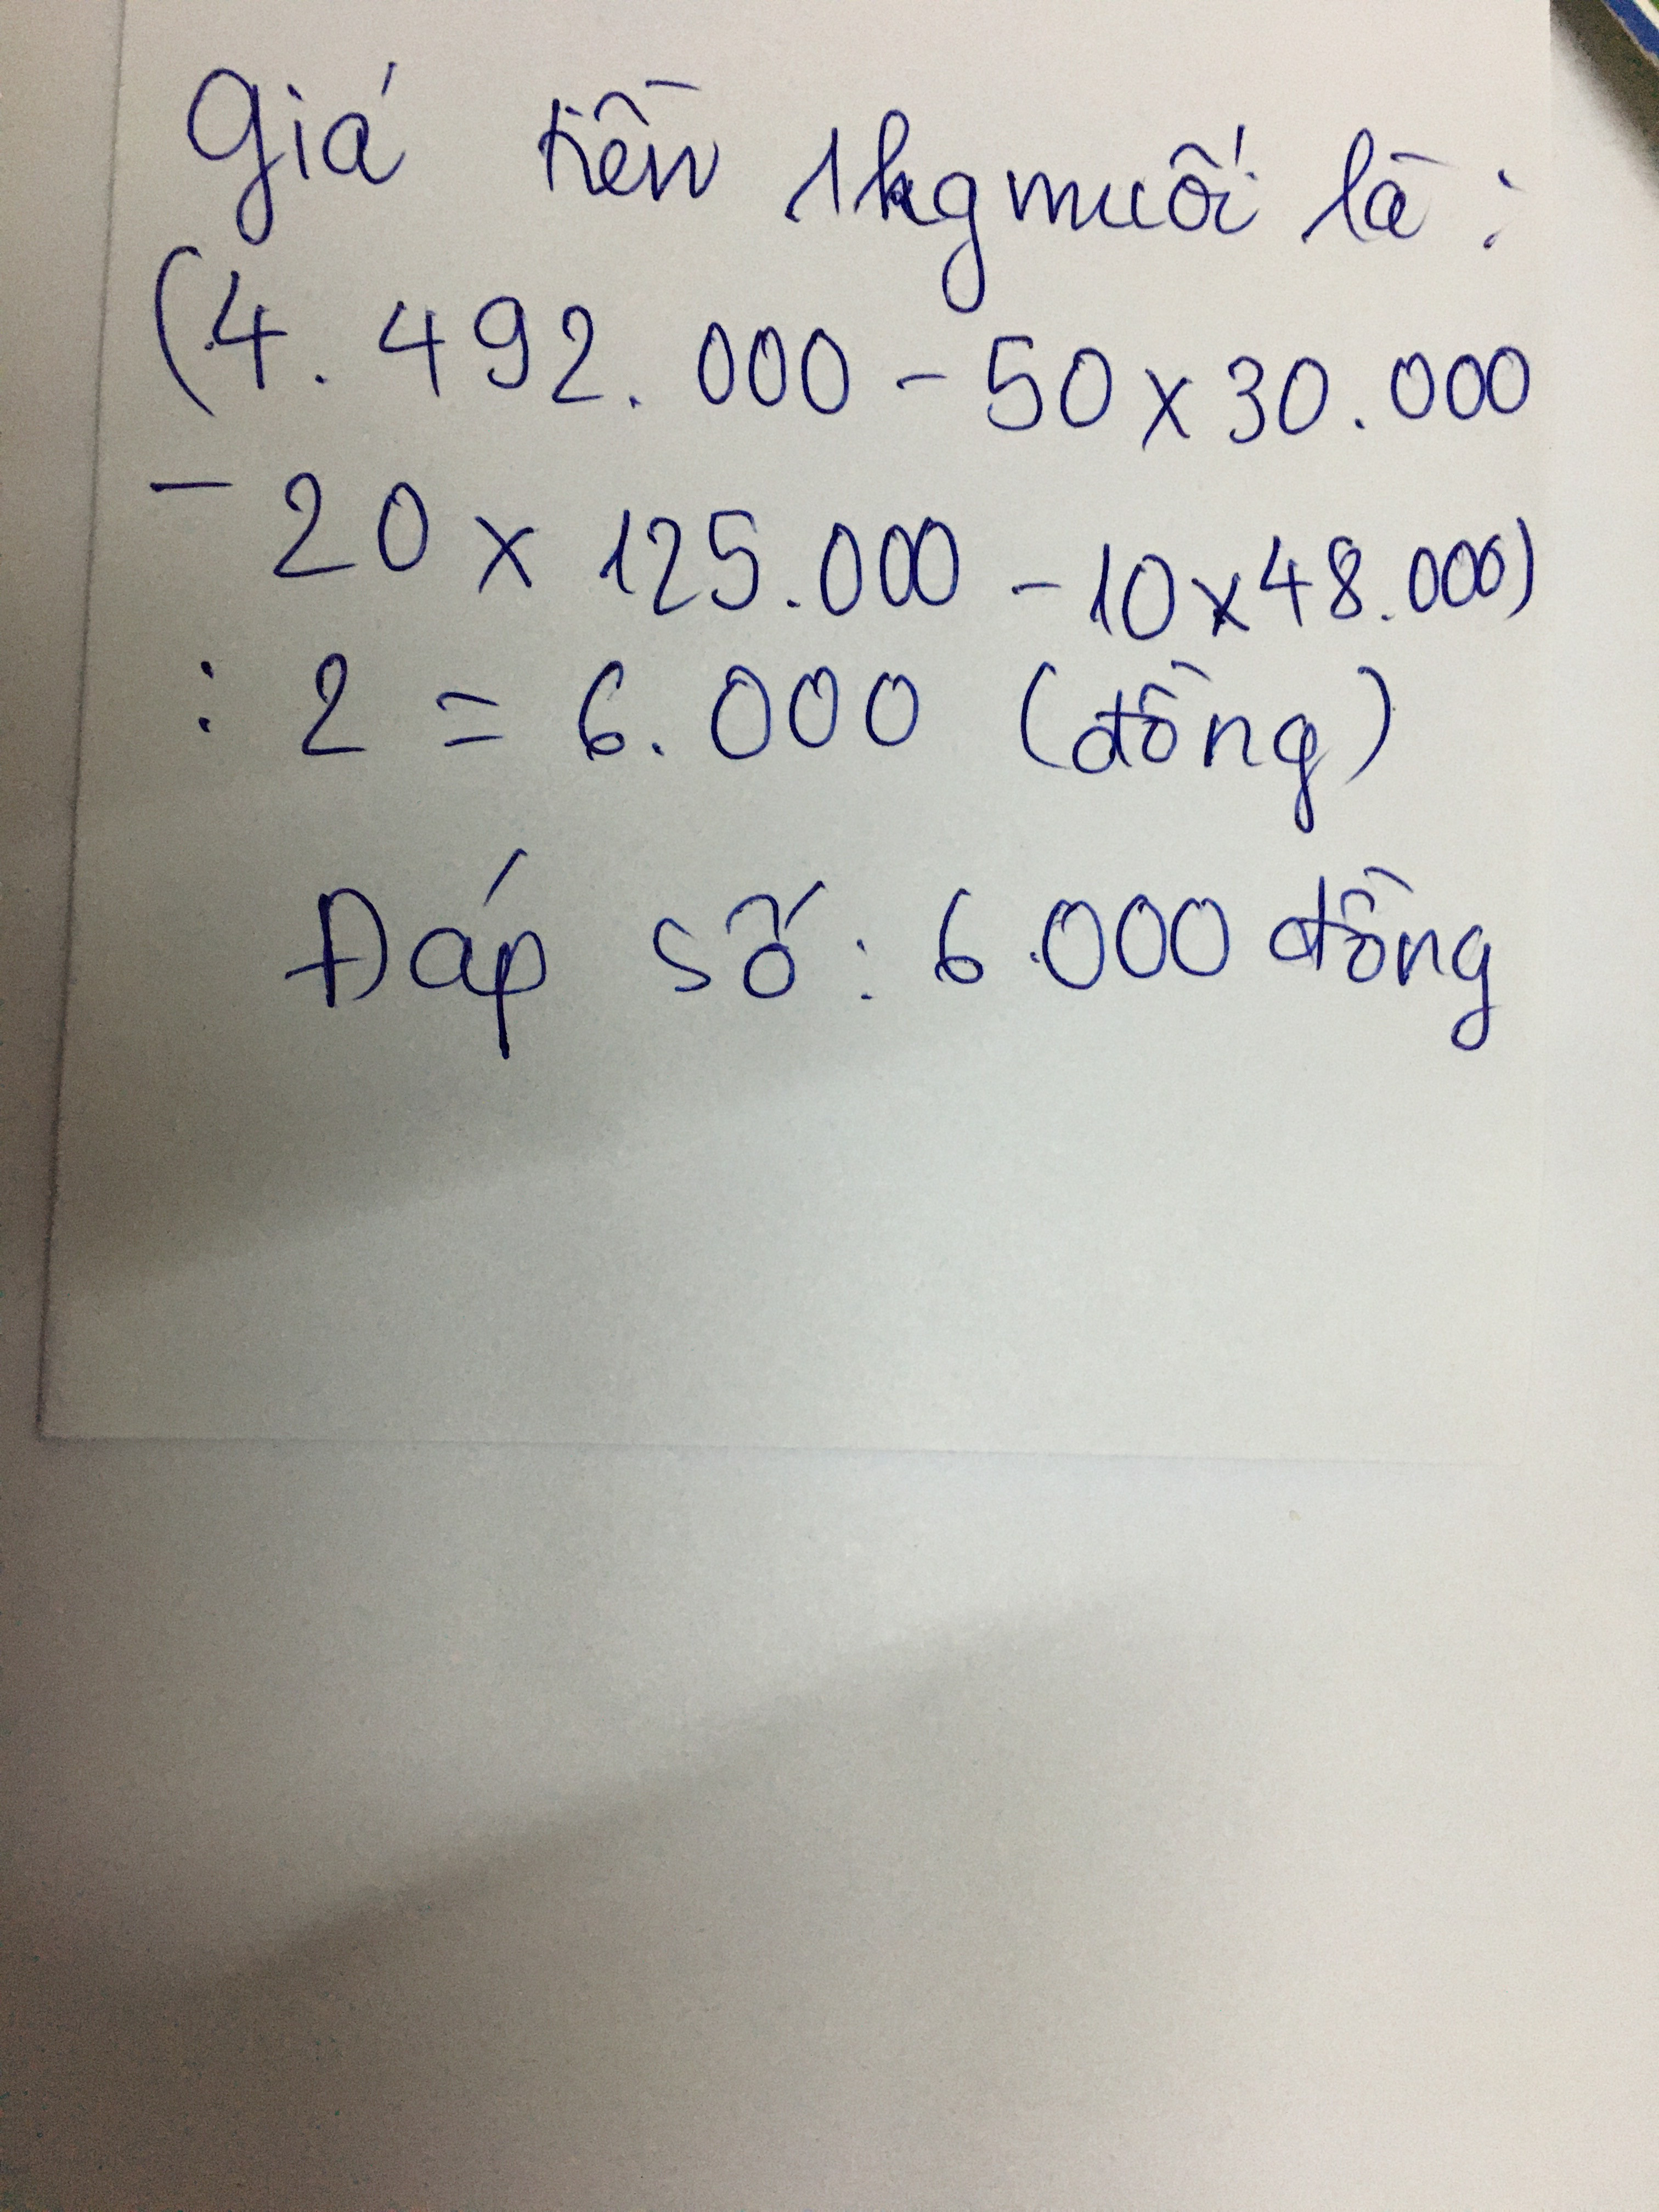 Giá tiền 1kg muối là :
(4.492.000 - 50 x 30.000
- 20 x 125.000 - 10 x 48.000)
: 2 = 6.000 (đồng)
Đáp số : 6.000 đồng